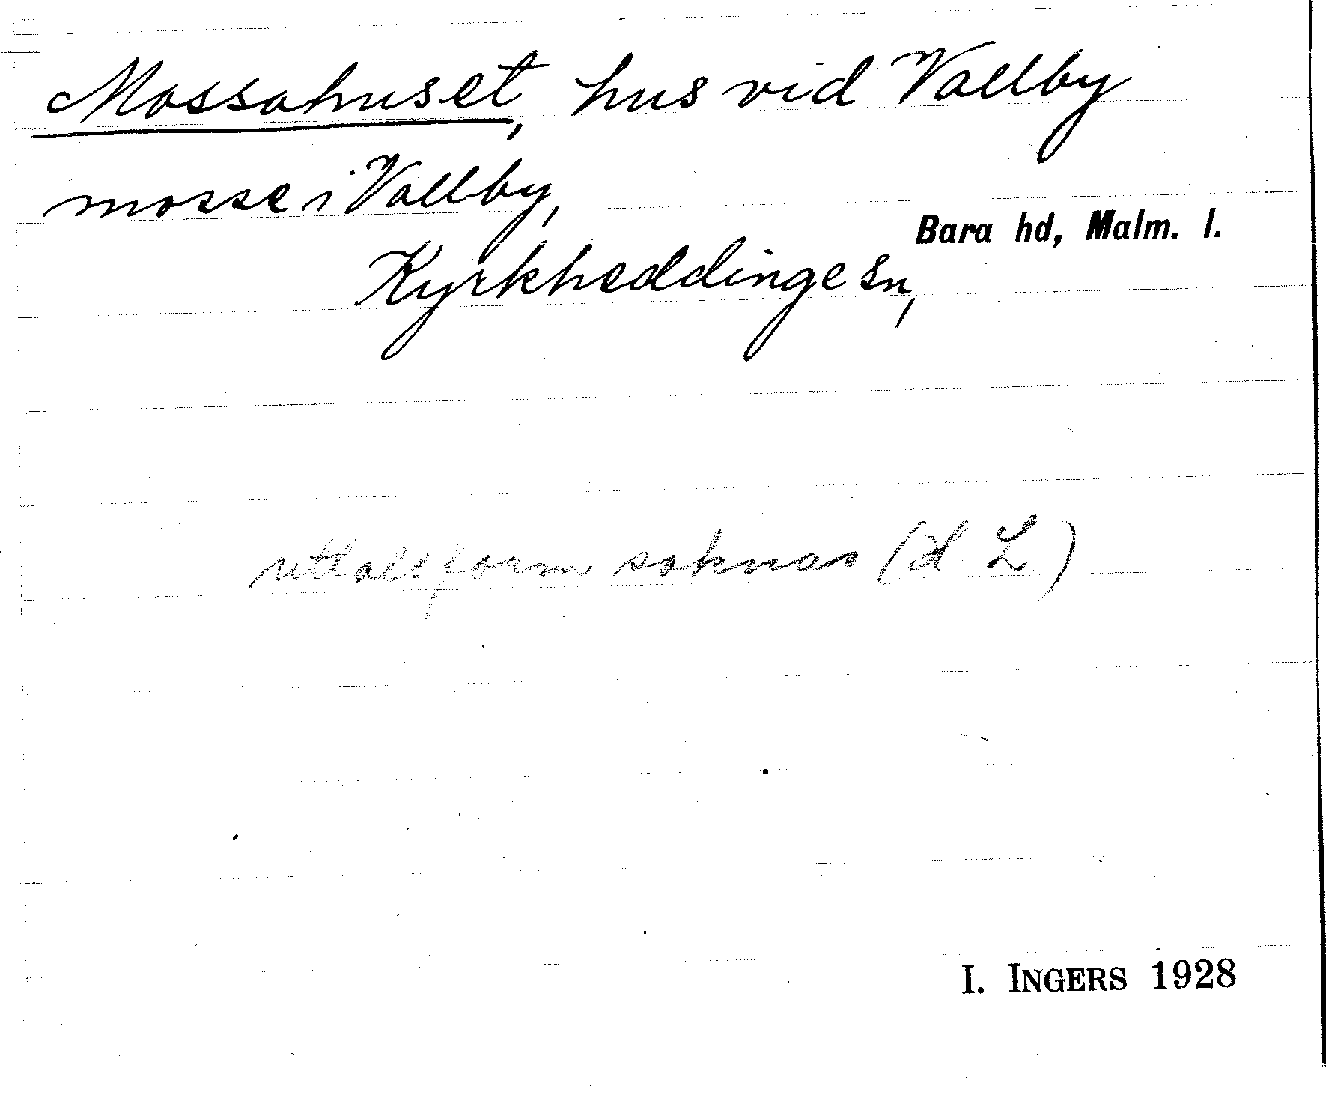 Mossahuset, hus vid Vallby
mosse i Vallby,
Kyrkheddinge sn,
Bara hd, Malm. l.
uttalsform saknas (d L)
I. INGERS 1928